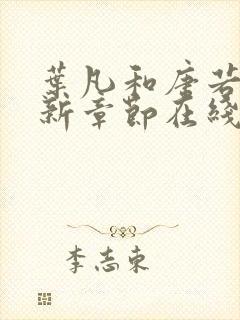 葉凡和唐若
新章節在綫
李志東